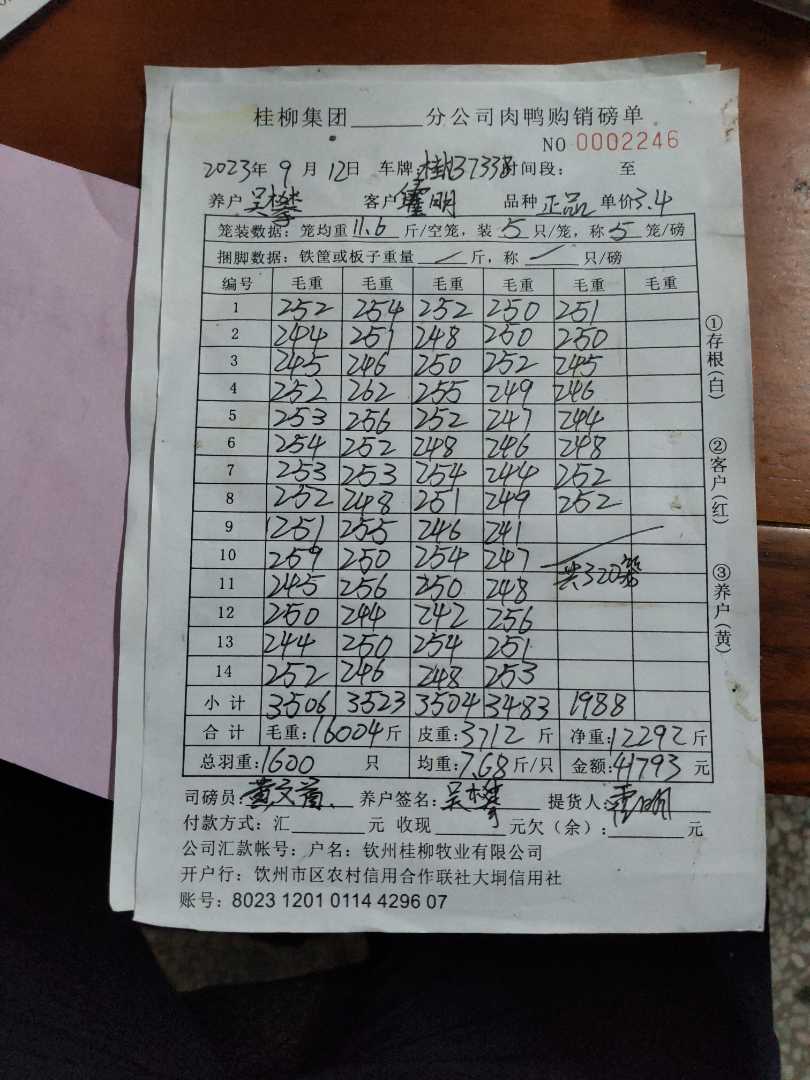 桂柳集团______分公司肉鸭购销磅单
NO 0002246
2023年 9 月 12日 车牌: 时间段: 至
养户 吴攀 客户 霍明 品种 正品 单价3.4
笼装数据: 笼均重 11.6 斤/空笼, 装 5 只/笼, 称 5 笼/磅
捆脚数据: 铁筐或板子重量 / 斤, 称 / 只/磅
编号 毛重 毛重 毛重 毛重 毛重 毛重
1 252 254 252 250 251
2 244 251 248 250 250
3 245 246 250 252 245
4 252 262 255 249 246
5 253 256 252 247 244
6 254 252 248 246 248
7 253 253 254 244 252
8 252 248 251 249 252
9 251 255 246 241
10 259 250 254 247 共320笼
11 245 256 250 248
12 250 244 242 256
13 244 250 254 251
14 252 246 248 253
小计 3506 3523 3504 3483 1988
合计 毛重:16004斤 皮重:3712 斤 净重:12292斤
总羽重:1600 只 均重:7.68斤/只 金额:41793 元
司磅员: 养户签名: 吴攀 提货人: 霍明
付款方式: 汇______元 收现______元欠(余):______元
公司汇款帐号: 户名: 钦州桂柳牧业有限公司
开户行: 钦州市区农村信用合作联社大垌信用社
账号: 8023 1201 0114 4296 07
①存根(白)
②客户(红)
③养户(黄)